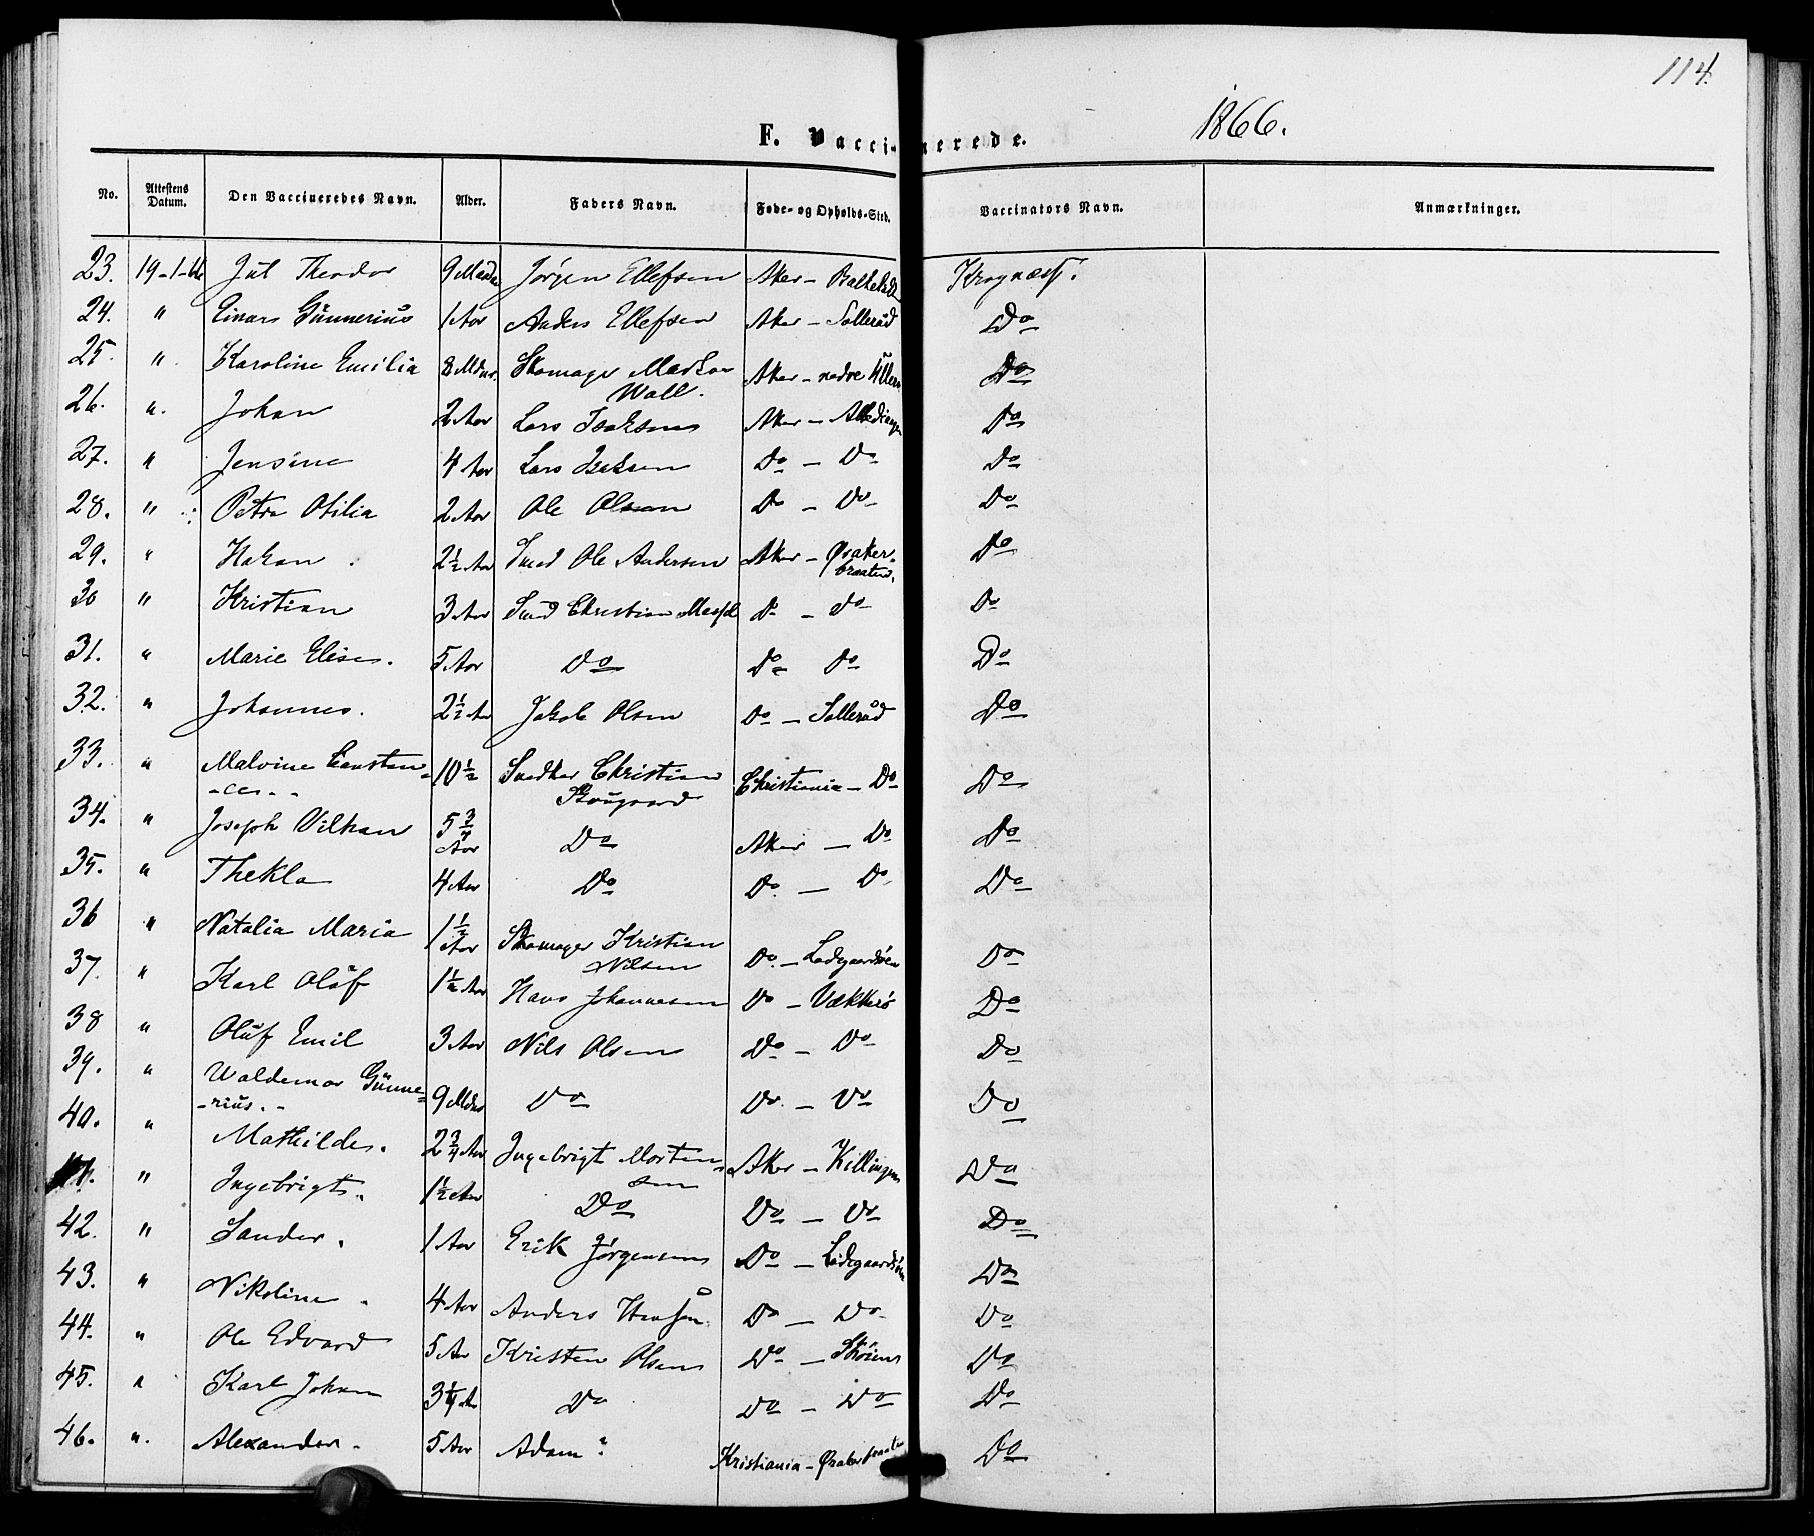 114.
F. Vaccinerede. 1866.
No. Attestens Datum. Den Vaccineredes Navn. Alder. Faders Navn. Føde- og Opholds-Sted. Vaccinators Navn. Anmærkninger.
23. 19-1-66 Jul Theodor 9 Jørgen Ellefsen Aker -
24. " Einars Günnerius 1 Aar Anders Ellefsen Aker - Solleråd Do
25. " Karoline Emilia 8 Mdnr. Skomager Wall. Aker - nedre Ullern Do
26. " Johan 2 Aar Lars Isaksens Aker - Do
27. " Jensine 4 Aar Lars Isaksen Do - Do Do
28. " Petra Otilia 2 Aar Ole Olsen Do - Do Do
29. " Hakon 2½ Aar Smed Ole Andersen Aker - Øraker-
braaten. Do
30 " Kristian 3 Aar Smed Christian Do - Do Do
31. " Marie Elise. 5 Aar Do Do - Do Do
32. " Johannes. 2½ Aar Jakob Olsen Do - Solleråd Do
33. " Malvine Constan-
-ce. 10½ Snedker Christian
Skougaard Christiania - Do Do
34. " Joseph Vilhan 5¾ Aar Do Aker - Do Do
35. " Thekla 4 Aar Do Do - Do Do
36 " Natalia Maria 1½ Aar Skomager Kristian
Nilsen Do - Ladegaardsøen Do
37. " Karl Olaf 1½ Aar Hans Johannesen Do - Vækkerø Do
38 " Oluf Emil 3 Aar Nils Olsen Do - Do Do
39. " Waldemar Günne-
-rius. 9 Mdnr Do Do - Do Do
40. " Mathilde. 2¾ Aar Ingebrigt Morten-
sen Aker - Killingen Do
41. " Ingebrigt. 1½ Aar Do Do - Do Do
42. " Sander. 1 Aar Erik Jørgensens Do - Ladegaardsøen
43. " Nikoline. 4 Aar Anders Hansen. Do - Do Do
44. " Ole Edvard 5 Aar Kristen Olsens Do - Skøiens Do
45. " Karl Johan 3¼ Aar Do Do - Do Do
46. " Alexander. 5 Aar Adam? Kristiania - Ørakerbraaten Do